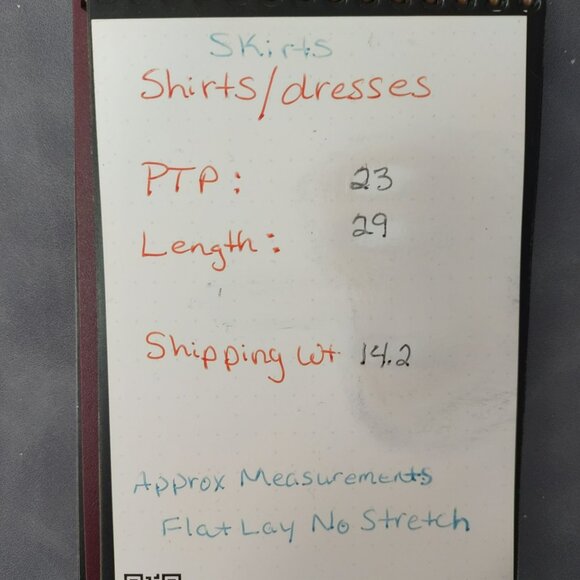 Skirts
Shirts/dresses
PTP: 23
Length: 29
Shipping Wt 14.2
Approx Measurements
Flat Lay No Stretch